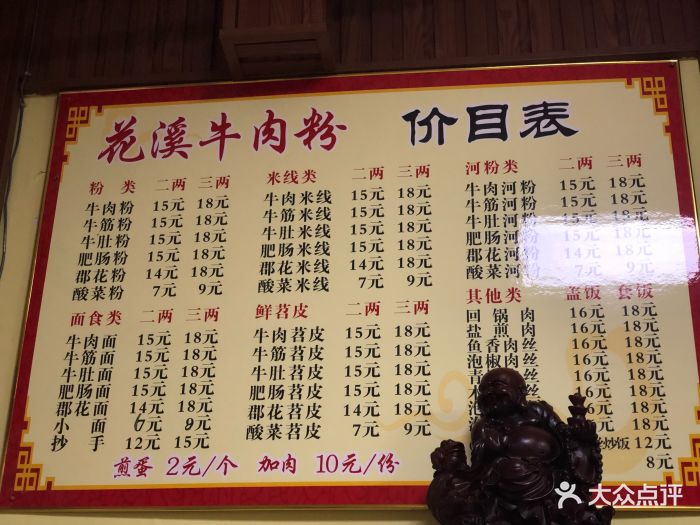 花溪牛肉粉 价目表
粉类 二两 三两
牛肉粉 15元 18元
牛筋粉 15元 18元
牛肚粉 15元 18元
肥肠粉 15元 18元
郡花粉 14元 18元
酸菜粉 7元 9元
米线类 二两 三两
牛肉米线 15元 18元
牛筋米线 15元 18元
牛肚米线 15元 18元
肥肠米线 15元 18元
郡花米线 14元 18元
酸菜米线 7元 9元
河粉类 二两 三两
牛肉河粉 15元 18元
牛筋河粉 15元 18元
牛肚河粉 15元 18元
肥肠河粉 15元 18元
郡花河粉 14元 18元
酸菜河粉 7元 9元
面食类 二两 三两
牛肉面 15元 18元
牛筋面 15元 18元
牛肚面 15元 18元
肥肠面 15元 18元
郡花面 14元 18元
小面 7元 9元
抄手 12元 15元
鲜苕皮 二两 三两
牛肉苕皮 15元 18元
牛筋苕皮 15元 18元
牛肚苕皮 15元 18元
肥肠苕皮 15元 18元
郡花苕皮 14元 18元
酸菜苕皮 7元 9元
其他类 盖饭 套饭
回锅肉 16元 18元
盐煎肉 16元 18元
鱼香肉丝 16元 18元
泡椒肉丝 16元 18元
丝 16元 18元
16元 18元
泡 16元 18元
16元 18元
炒饭 12元
8元
煎蛋 2元/个 加肉 10元/份
大众点评